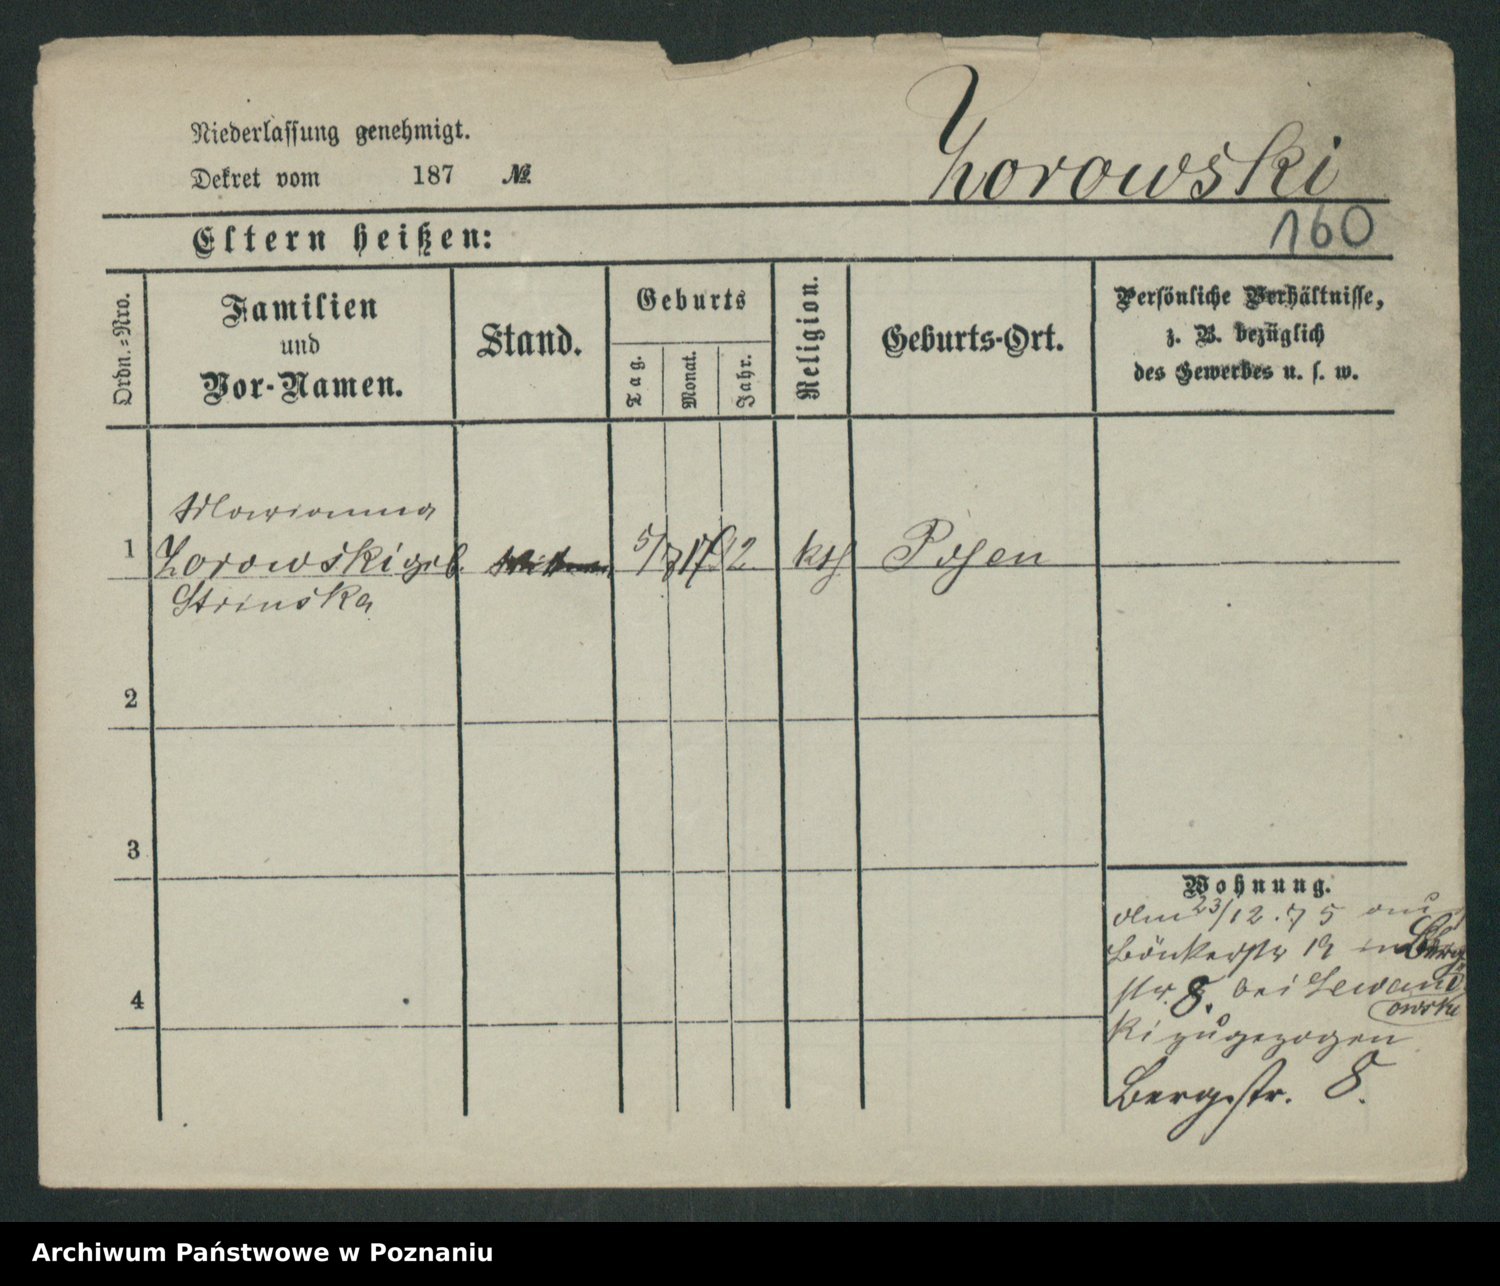 Niederlassung genehmigt.
Dekret vom 187 №
Zorowski
160
Eltern heißen:
Ordn.-Nro.
Familien
und
Vor-Namen.
Stand.
Geburts
Tag.
Monat.
Jahr.
Religion.
Geburts-Ort.
Persönliche Verhältnisse,
z. B. bezüglich
des Gewerbes u. s. w.
Marianna
1 Zorowski geb. kth Posen
Strinska
2
3
Wohnung.
den 23/12.75 aus
in Berg
4
str. 8. bei Lewand
owski
ki zugezogen
Bergstr. 8.
Archiwum Państwowe w Poznaniu